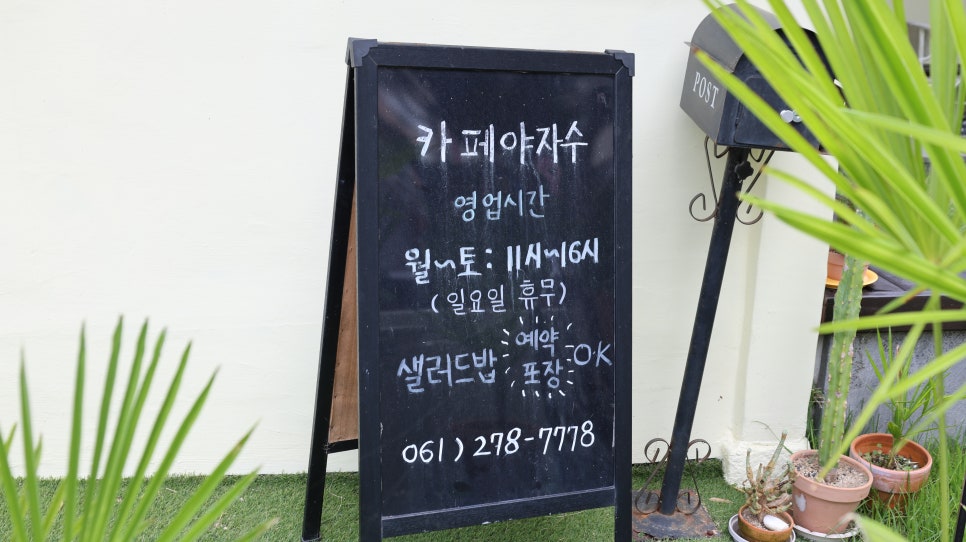 카페야자수
영업시간
월~토: 11시~16시
(일요일 휴무)
샐러드밥 예약 포장 OK
061) 278-7778
POST